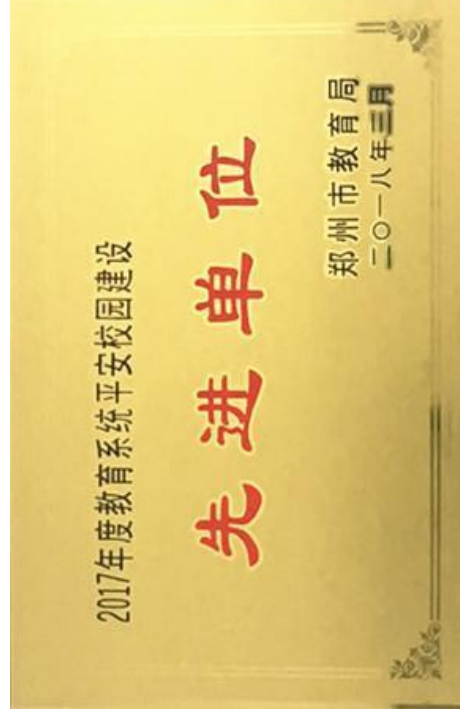 2017年度教育系统平安校园建设
先进单位
郑州市教育局
二〇一八年三月